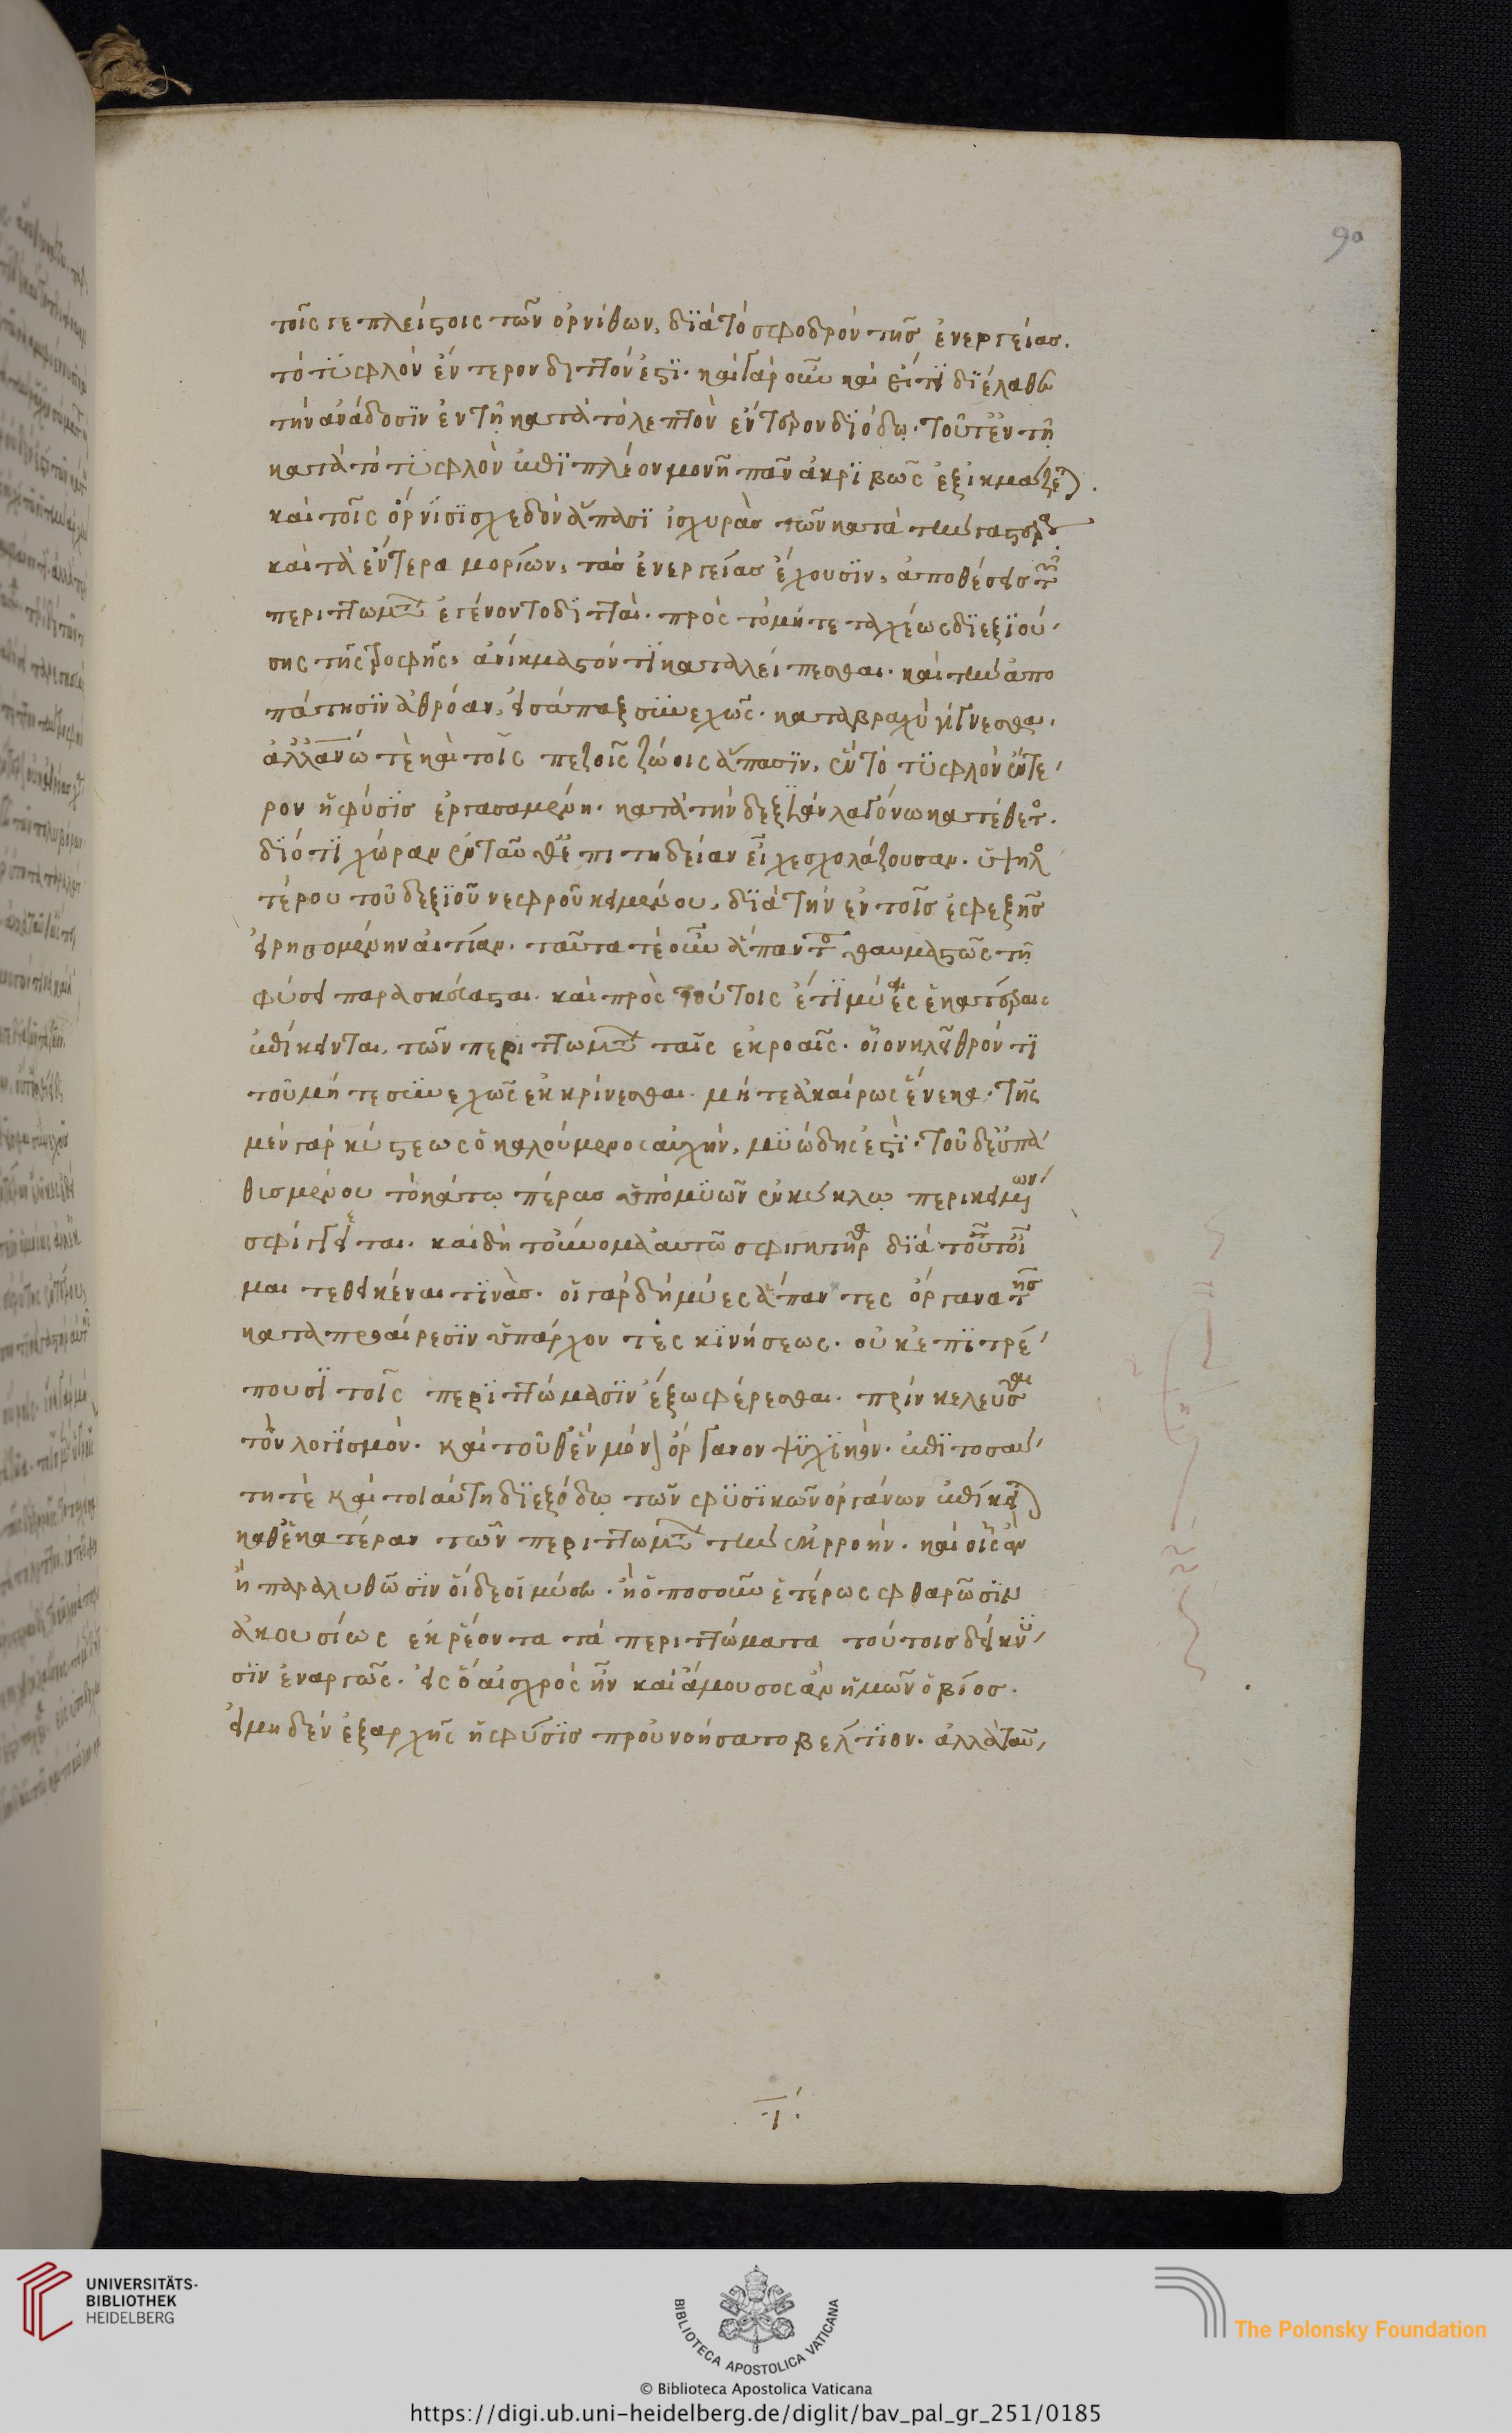 90
τοῖς γε πλείστοις τῶν ὀρνίθων, διὰ τὸ σφοδρὸν τῆς ἐνεργείας.
τὸ τυφλὸν ἔντερον διττόν ἐστι. καὶ γὰρ οὖν καὶ εἴ τι διέλαθε
τὴν ἀνάδοσιν ἐν τῇ κατὰ τὸ λεπτὸν ἔντερον διόδῳ. τοῦτ' ἐν τῇ
κατὰ τὸ τυφλὸν ἐπὶ πλέον μονῇ πᾶν ἀκριβῶς ἐξικμάζεται.
καὶ τοῖς ὄρνισι σχεδὸν ἅπασι ἰσχυρὰς τῶν κατὰ τὴν γαστέρα
καὶ τὰ ἔντερα μορίων, τὰς ἐνεργείας ἔχουσιν, ἀποθέσεις τῶν
περιττωμάτων ἐγένοντο διτταὶ. πρὸς τὸ μήτε ταχέως διεξιού
σης τῆς τροφῆς, ἀνίκμαστόν τι καταλείπεσθαι. καὶ τὴν ἀπο
πάτησιν ἀθρόαν, εἰσάπαξ συνεχῶς. κατὰ βραχὺ γίγνεσθαι.
ἀλλ' ἄνω τε καὶ τοῖς πεζοῖς ζώοις ἅπασιν, ἓν τὸ τυφλὸν ἔντε
ρον ἡ φύσις ἐργασαμένη. κατὰ τὴν δεξιὰν λαγόνω κατέθετο.
διότι χώραν ἐνταῦθ' ἐπιτηδείαν εἶχε σχολάζουσαν. ὑψηλο
τέρου τοῦ δεξιοῦ νεφροῦ κειμένου, διὰ τὴν ἐν τοῖς ἐφεξῆς
εἰρησομένην αἰτίαν. ταῦτα τε οὖν ἅπαντα θαυμαστῶς τῇ
φύσει παρασκεύασται. καὶ πρὸς τούτοις ἔτι μύες ἑκατέραις
ἐπίκεινται, τῶν περιττωμάτων ταῖς ἐκροαῖς. οἷον κλεῖθρόν τι
τοῦ μήτε συνεχῶς ἐκκρίνεσθαι. μήτε ἀκαίρως ἕνεκα. τῆς
μὲν γὰρ κύστεως ὁ καλούμενος αὐχήν, μυώδης ἐστὶ. τοῦ δ' εὐπα
θισμένου τὸ κάτω πέρας ὑπὸ μυῶν ἐν κύκλῳ περικειμένων
σφίγγεται. καὶ δὴ τοὔνομα αὐτῶ σφιγκτῆρα διὰ τοῦτ' οἶ
μαι τεθεικέναι τινὰς. οἱ γὰρ δὴ μύες ἅπαντες ὄργανα τῆς
κατὰ προαίρεσιν ὑπάρχοντες κινήσεως. οὐκ ἐπιτρέ
πουσι τοῖς περιττώμασιν ἔξω φέρεσθαι. πρὶν κελεῦσαι
τὸν λογισμὸν. καὶ τοῦθ' ἓν μόνον ὄργανον ψυχικὸν. ἐπὶ τοσαύ
τη τὲ καὶ τοιαύτη διεξόδῳ τῶν φυσικῶν ὀργάνων ἐπίκειται
καθ' ἑκατέραν τῶν περιττωμάτων τὴν ἐκρροήν. καὶ οἷς ἂν
ἢ παραλυθῶσιν οἵδε οἱ μύες. ἢ ὁπωσοῦν ἑτέρως φθαρῶσιν
ἀκουσίως ἐκρέοντα τὰ περιττώματα τούτοις δείκνυ
σιν ἐναργῶς. εἰς ὃ αἰσχρὸς ἦν καὶ ἄμουσος ἂν ἡμῶν ὁ βίος.
εἰ μηδὲν ἐξ ἀρχῆς ἡ φύσις προὐνοήσατο βέλτιον. ἀλλὰ ταῦ
ι
UNIVERSITÄTS-
BIBLIOTHEK
HEIDELBERG
BIBLIOTECA APOSTOLICA VATICANA
The Polonsky Foundation
© Biblioteca Apostolica Vaticana
https://digi.ub.uni-heidelberg.de/diglit/bav_pal_gr_251/0185